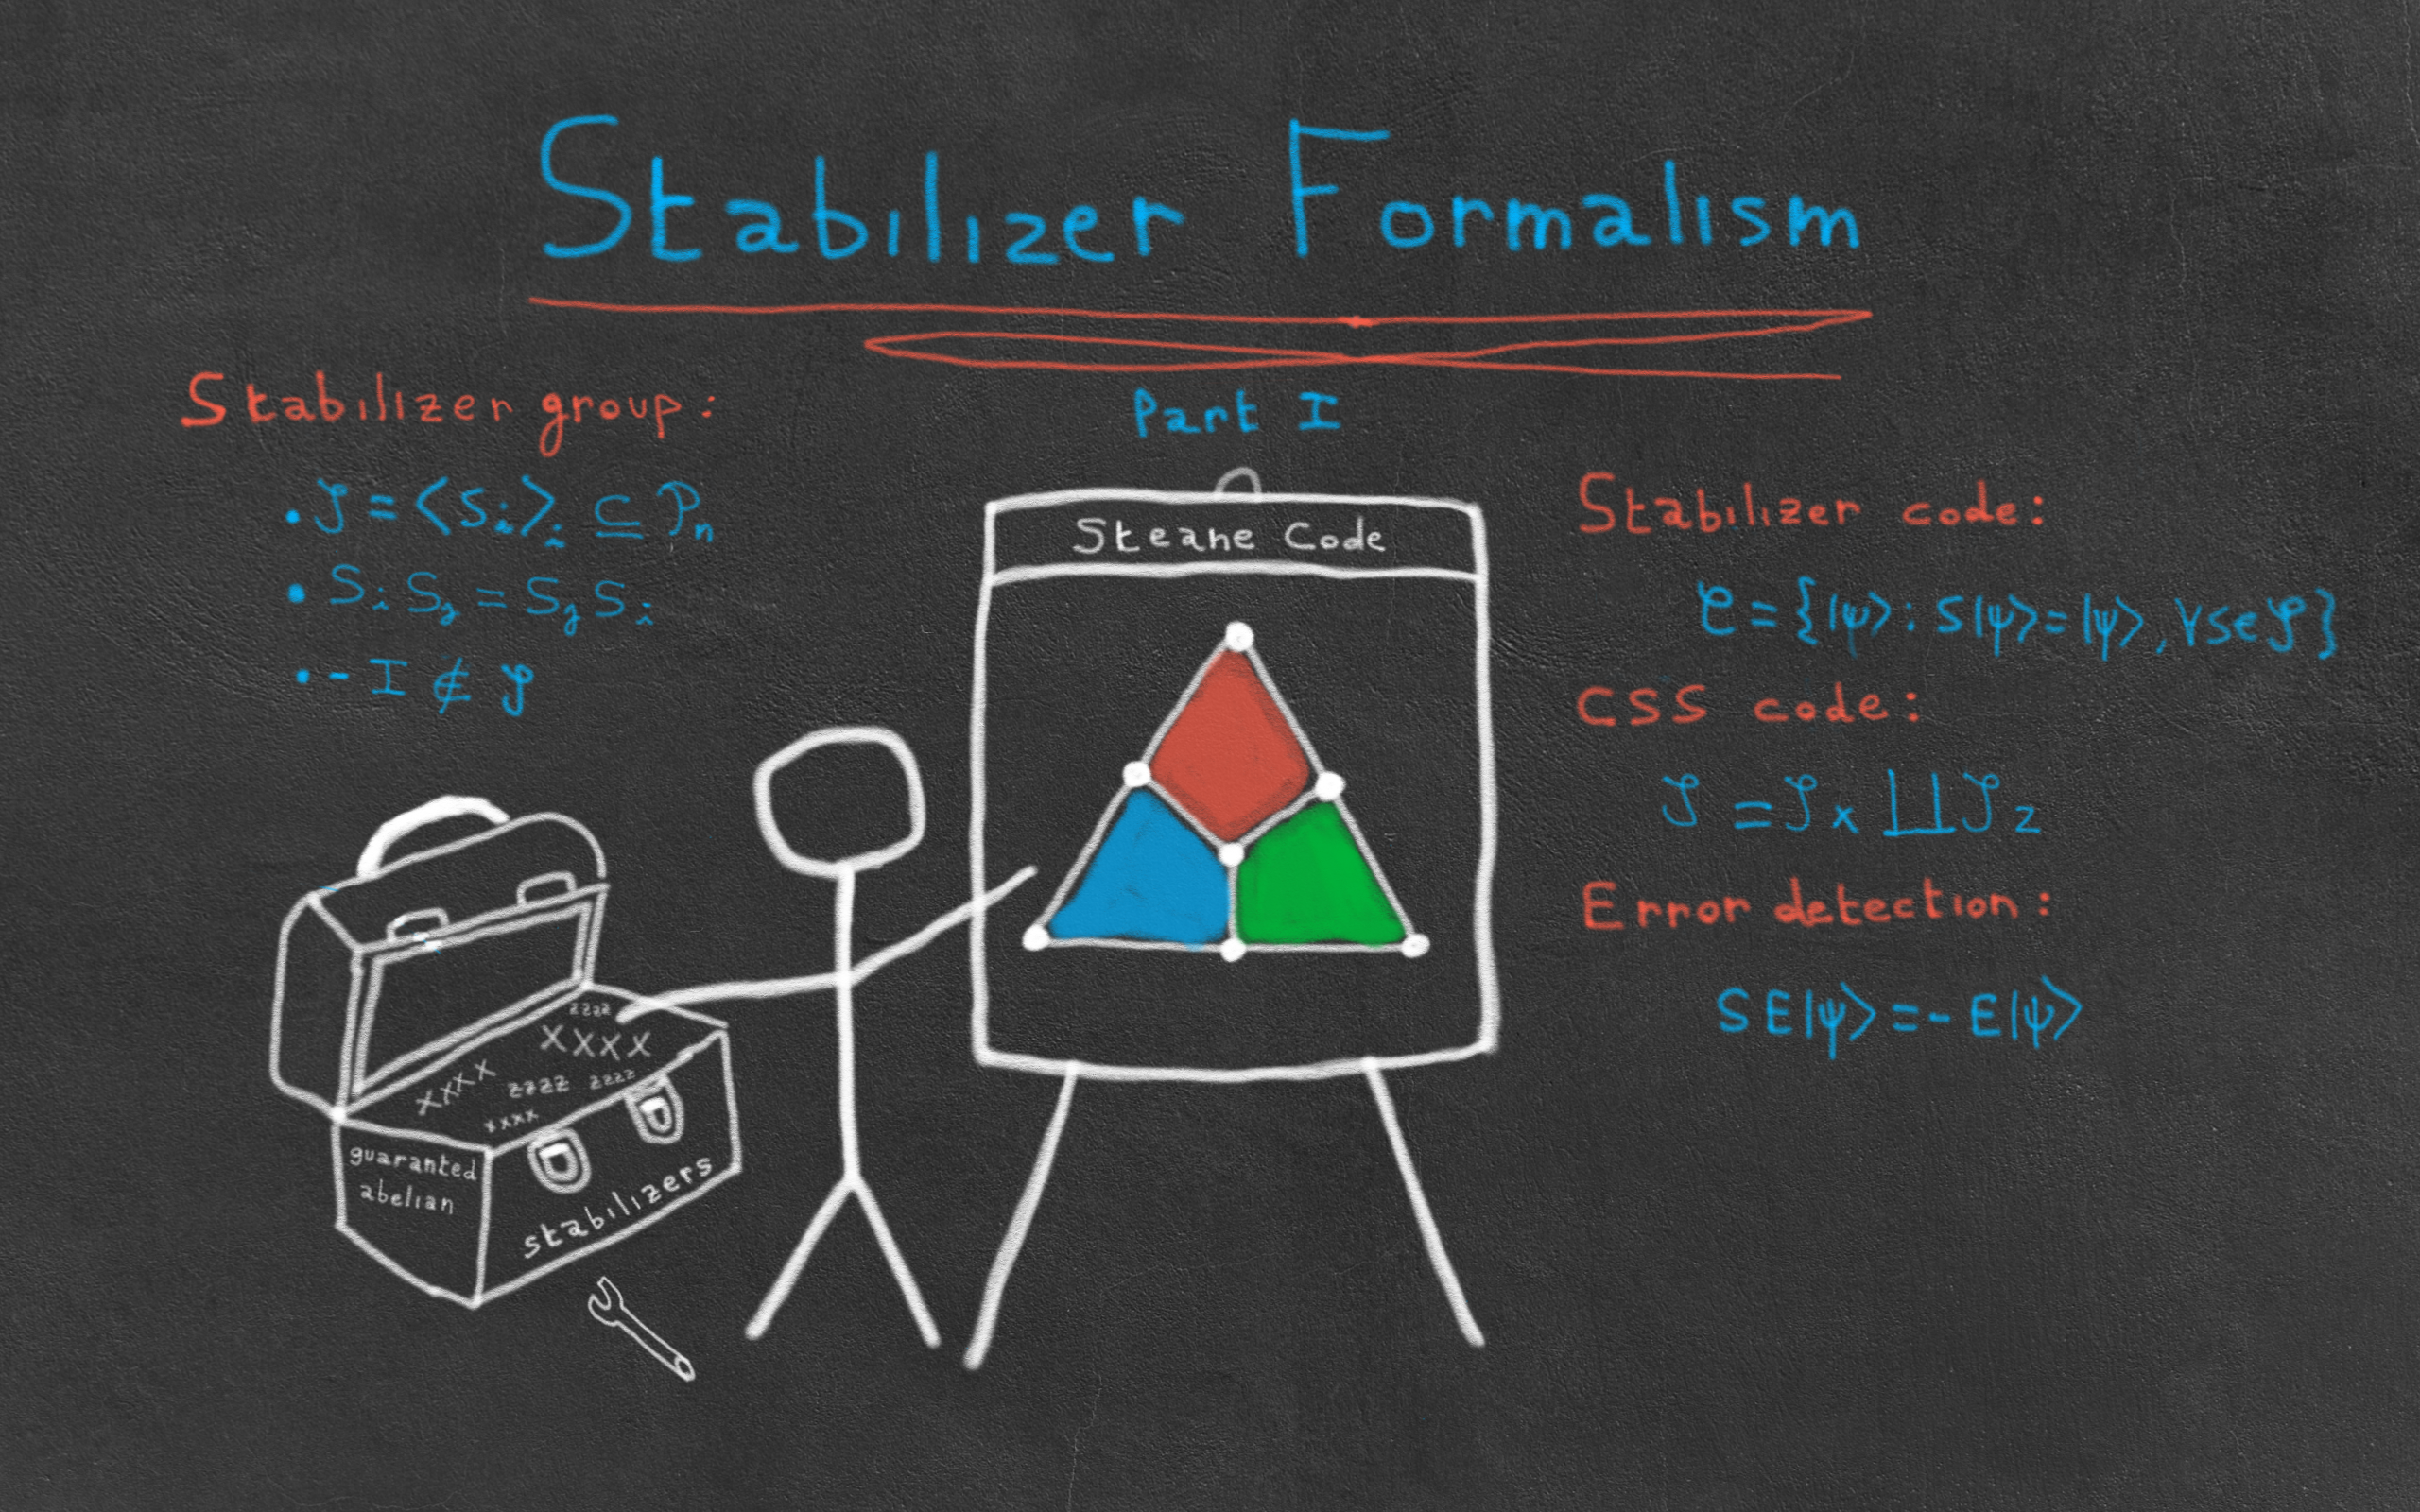 Stabilizer Formalism
Part I
Stabilizer group:
• 𝒮 = ⟨Sᵢ⟩ᵢ ⊆ 𝒫ₙ
• Sᵢ Sⱼ = Sⱼ Sᵢ
• - I ∉ 𝒮
Steane Code
Stabilizer code:
𝒞 = {|ψ⟩ : S|ψ⟩ = |ψ⟩, ∀ S ∈ 𝒮}
CSS code:
𝒮 = 𝒮x ⨿ 𝒮z
Error detection:
S E|ψ⟩ = - E|ψ⟩
zzzz
XXXX
XXXX
zzzz
zzzz
xxxx
guaranted
abelian
stabilizers